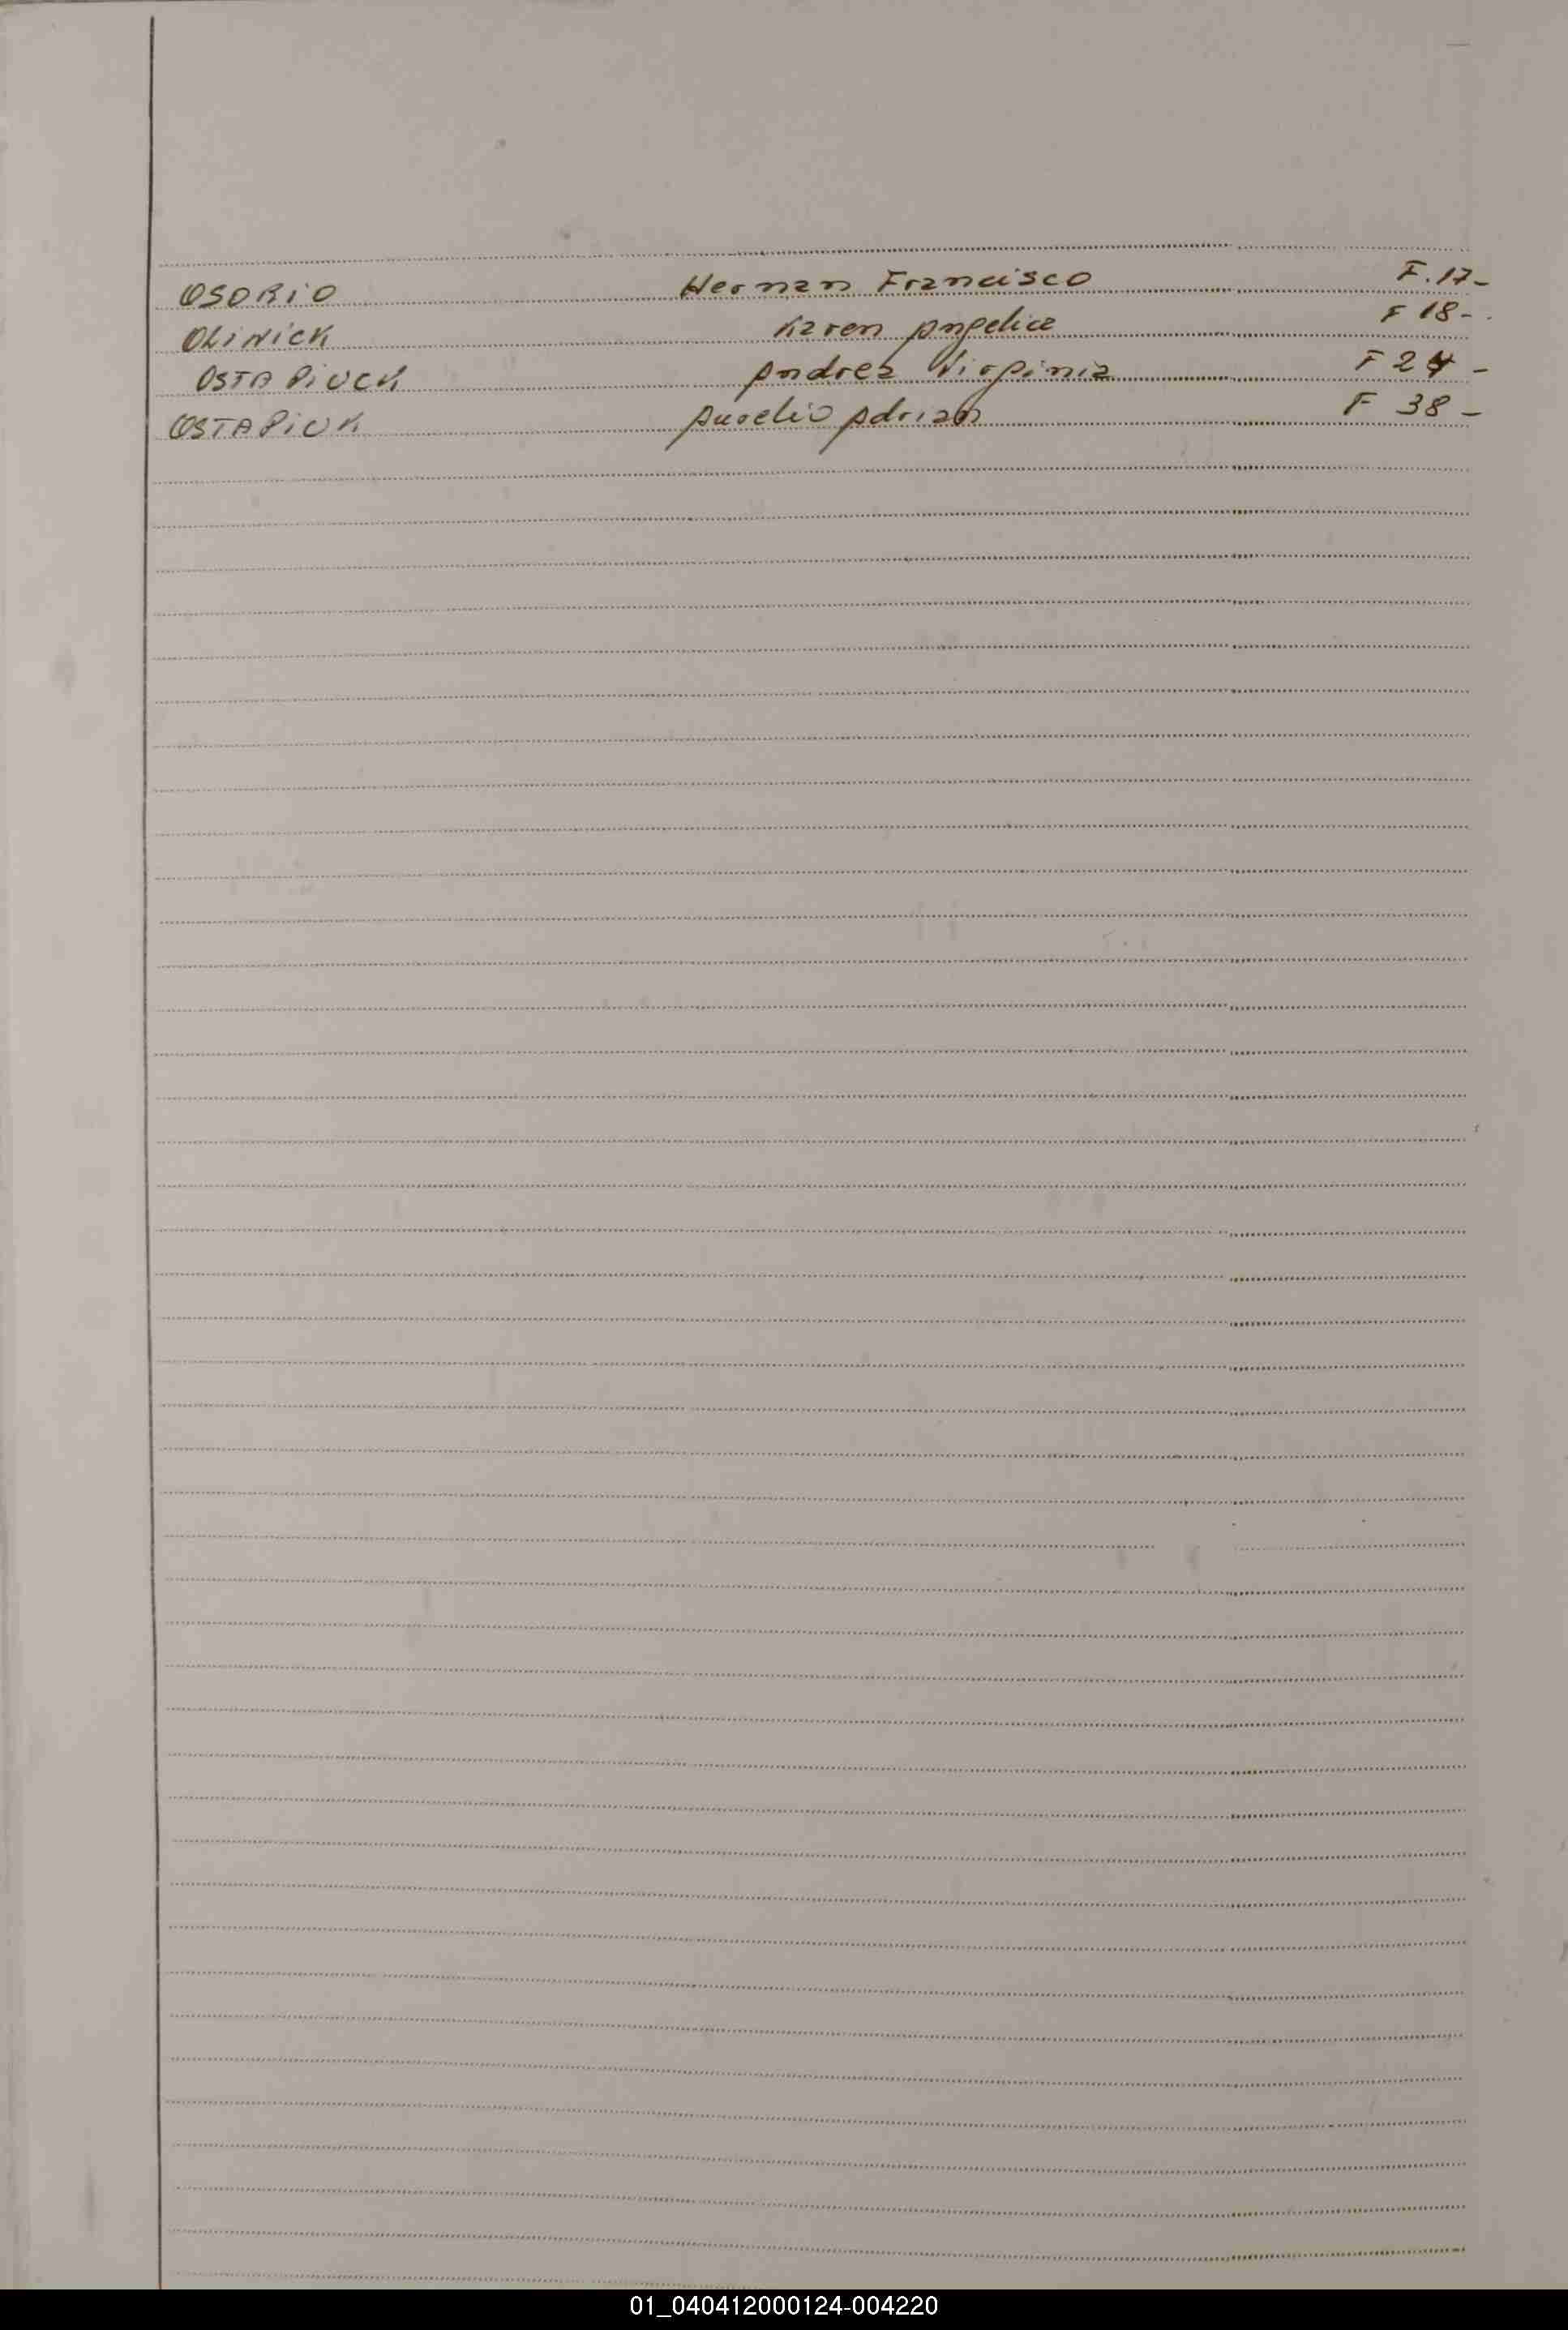 OSORIO Hernan Francisco F.17-
OLINICK Karen Angelica F 18-
OSTAPIUCK Andrea Virginia F 24 -
OSTAPIUK Aurelio Adrian F 38 -
01_040412000124-004220